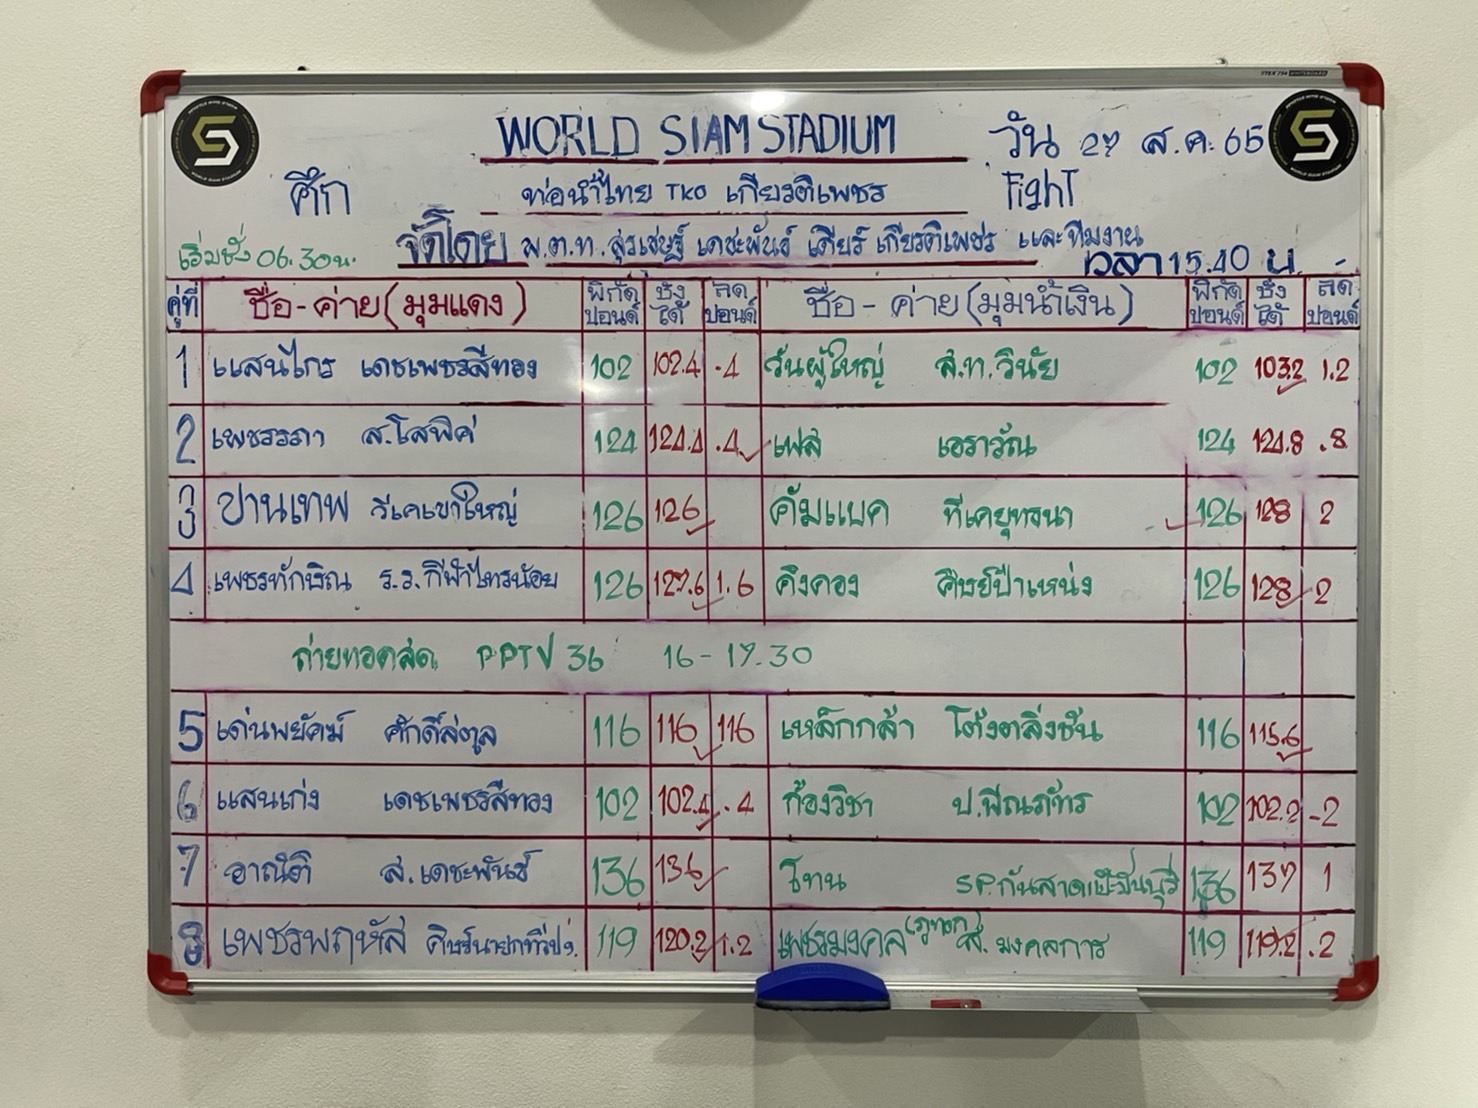 WORLD SIAM STADIUM วัน 27 ส.ค. 65
ศึก ท่อน้ำไทย TKO เกียรติเพชร Fight
เริ่มชั่ง 06.30น. จัดโดย พ.ต.ท. สุรเชษฐ์ เดชะพันธ์ เดียร์ เกียรติเพชร และทีมงาน เวลา 15.40 น. -
คู่ที่ ชื่อ-ค่าย (มุมแดง) พิกัด ปอนด์ ชั่ง ได้ ลด ปอนด์ ชื่อ - ค่าย (มุมน้ำเงิน) พิกัด ปอนด์ ชั่ง ได้ ลด ปอนด์
1 แสนไกร เดชเพชรสีทอง 102 102.4 .4 วันผู้ใหญ่ ส.ท.วินัย 102 103.2 1.2
2 เพชรรดา ส.โสพิศ 124 124.4 .4 เฟส เอราวัณ 124 124.8 .8
3 ปานเทพ วีเคเขาใหญ่ 126 126 คัมแบค ทีเคยุทธนา 126 128 2
4 เพชรทักษิณ ร.ร.กีฬาไทรน้อย 126 127.6 1.6 คิงคอง ศิษย์ป๋าเหน่ง 126 128 2
ถ่ายทอดสด PPTV 36 16 - 17.30
5 เด่นพยัคฆ์ ศักดิ์สตูล 116 116 116 เหล็กกล้า โต้งตลิ่งชัน 116 115.6
6 แสนเก่ง เดชเพชรสีทอง 102 102.4 .4 ก้องวิชา ป.พีณภัทร 102 102.2 .2
7 อาณิติ ส.เดชะพันธ์ 136 136 โทน S.P.กันสาดแป๊ะมีนบุรี 136 137 1
8 เพชรพฤหัส 119 120.2 1.2 เพชรมงคล ส.มงคลการ 119 119.2 .2